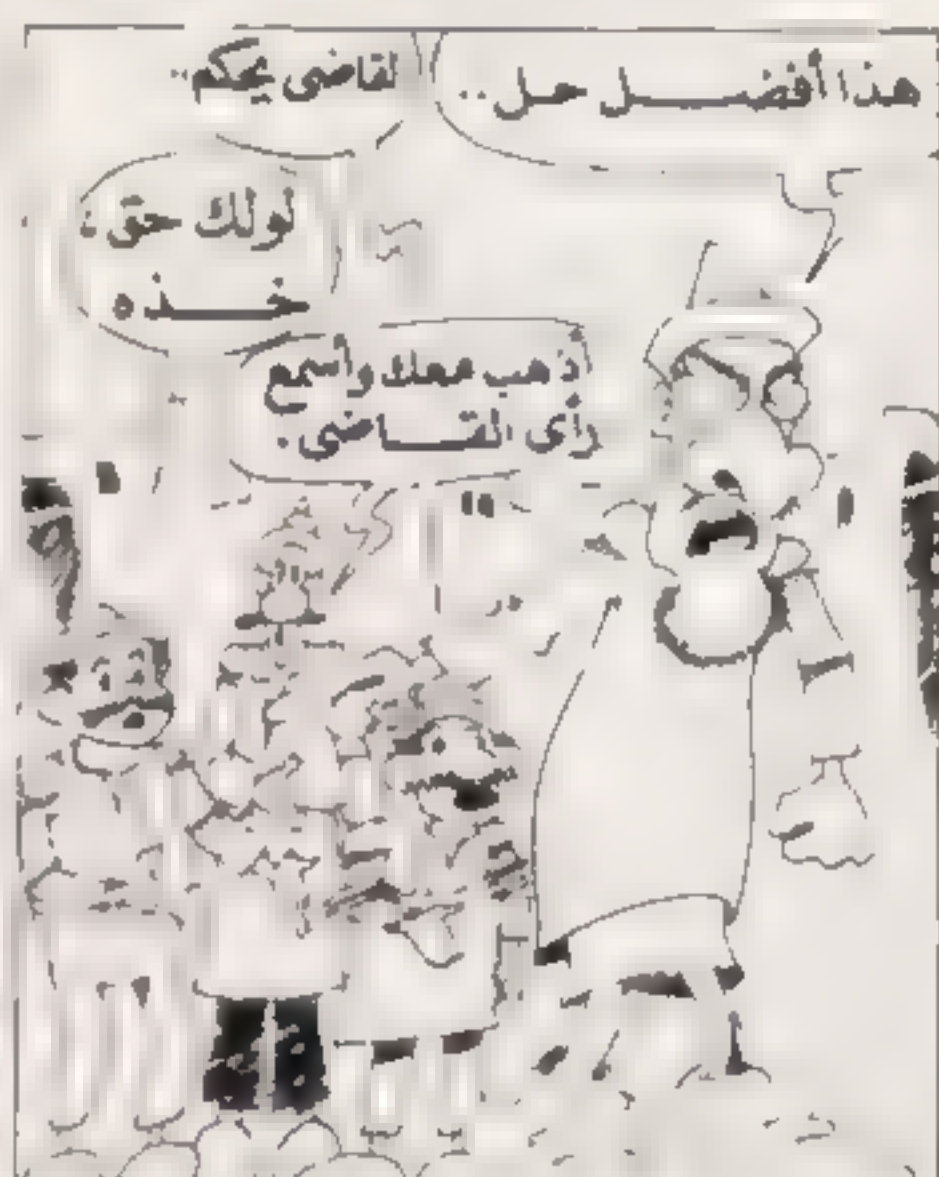 هذا أفضل حل..
لقاضى يحكم..
لو لك حق،
خذه
أذهب معك وأسمع
رأى القاضى.